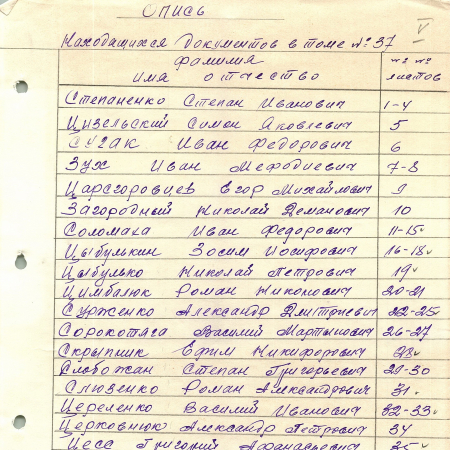 Опись
V
Находящихся документов в томе № 37
фамилия №№
имя отчество листов
Степаненко Степан Иванович 1-4
Цизельский Симон Яковлевич 5
Сугак Иван Федорович 6
Зух Иван Мефодиевич 7-8
Царегоровцев Егор Михайлович 9
Загородный Николай Демянович 10
Соломаха Иван Федорович 11-15
Цыбулькин Зосим Иосифович 16-18
Цыбулько Николай Петрович 19
Цимбалюк Роман Никонович 20-21
Сурженко Александр Дмитриевич 22-25
Сорокотяга Василий Мартынович 26-27
Скрыпник Ефим Никифорович 28
Слобожан Степан Григорьевич 29-30
Слюзенко Роман Александрович 31
Цереленко Василий Иванович 32-33
Церковнюк Александр Петрович 34
Цесс Григорий Афанасьевич 35